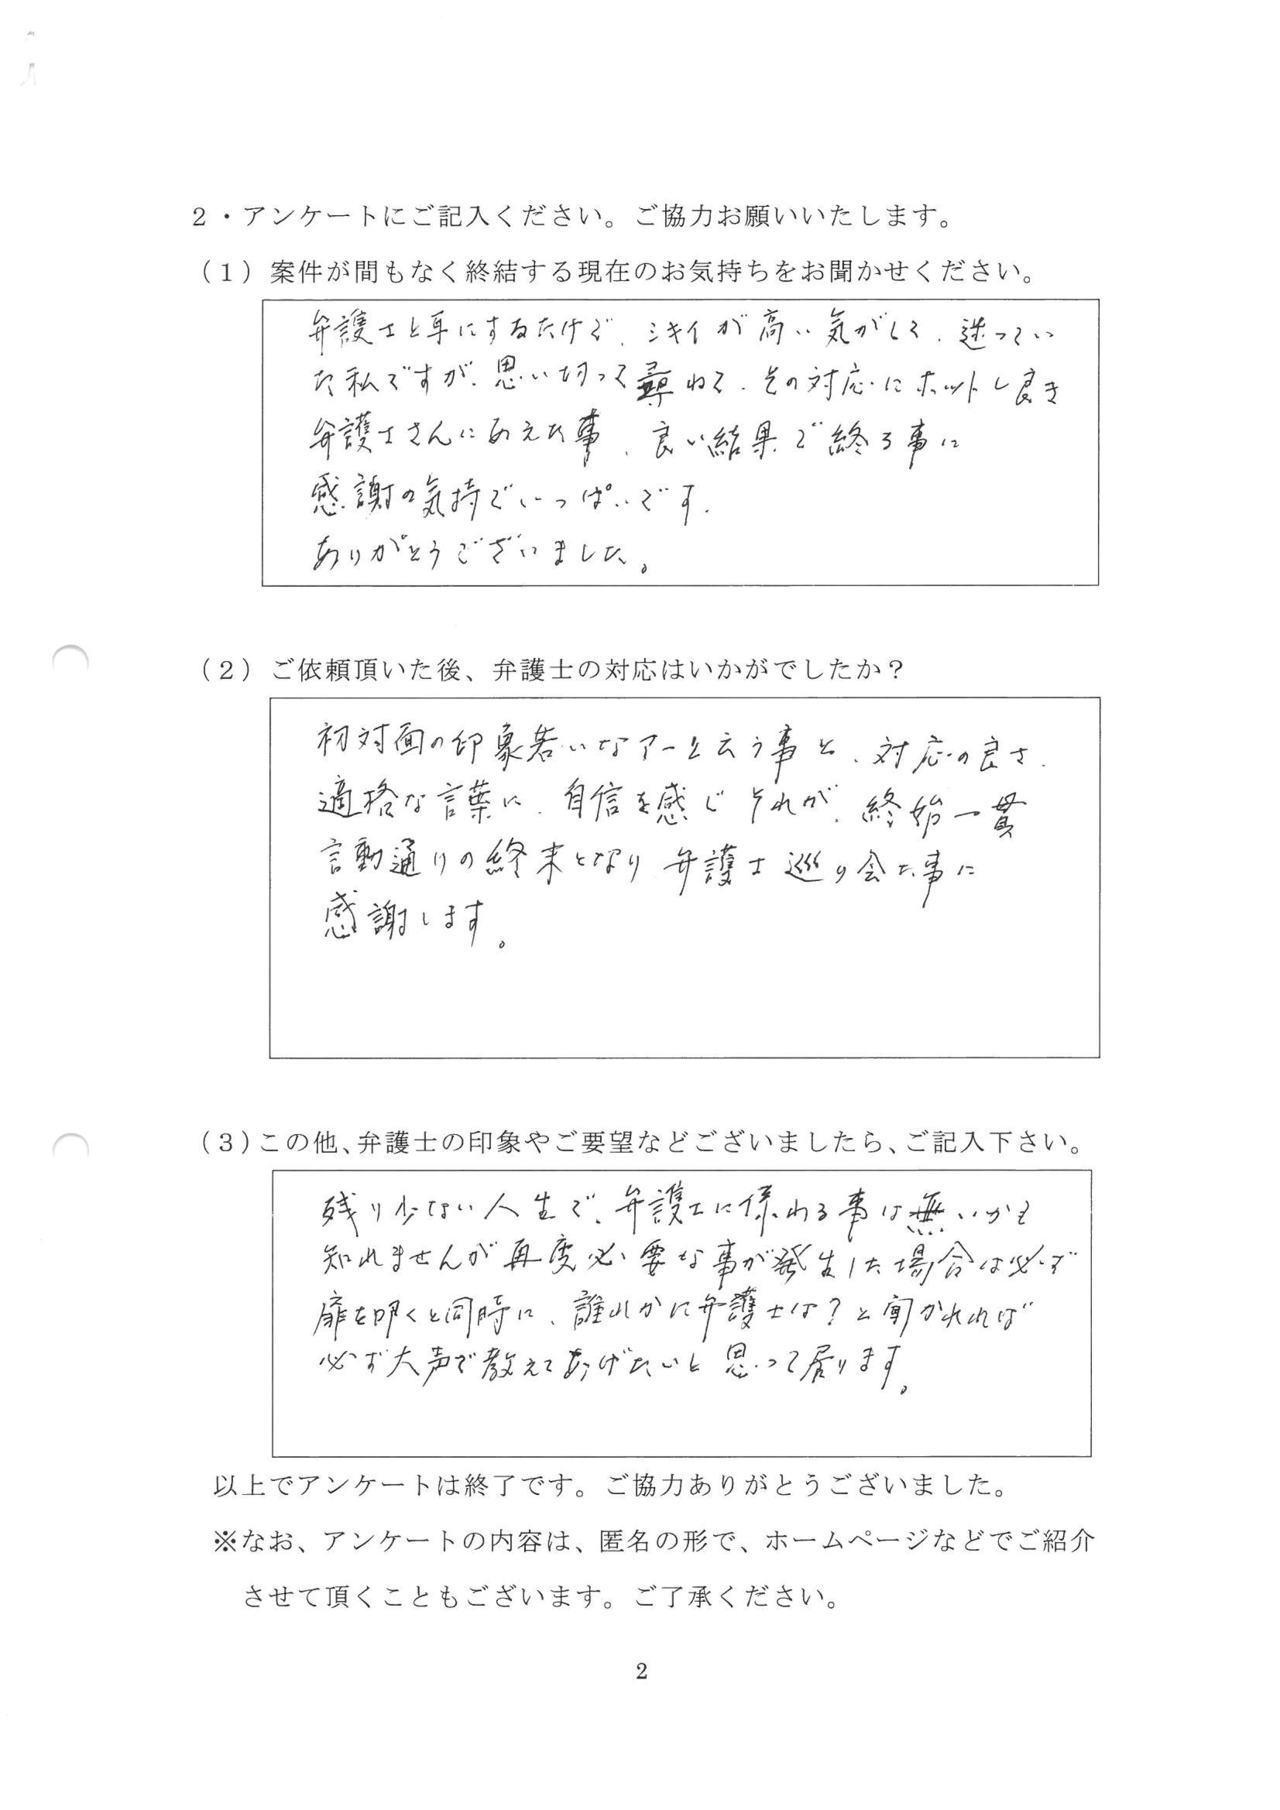 ２・アンケートにご記入ください。ご協力お願いいたします。
（１）案件が間もなく終結する現在のお気持ちをお聞かせください。
弁護士と耳にするだけで、シキイが高い気がして、迷ってい
た私ですが、思い切って尋ねて、その対応にホットし良き
弁護士さんにあえた事、良い結果で終る事に
感謝の気持でいっぱいです。
ありがとうございました。
（２）ご依頼頂いた後、弁護士の対応はいかがでしたか？
初対面の印象若いなアーと云う事と、対応の良さ、
適格な言葉に、自信を感じそれが、終始一貫
言動通りの終末となり弁護士巡り会た事に
感謝します。
（３）この他、弁護士の印象やご要望などございましたら、ご記入下さい。
残り少ない人生で、弁護士に係わる事は無いかも
知れませんが再度必要な事が発生した場合は必ず
扉を叩くと同時に、誰れかに弁護士は？と聞かれれば
必ず大声で教えてあげたいと思って居ります。
以上でアンケートは終了です。ご協力ありがとうございました。
※なお、アンケートの内容は、匿名の形で、ホームページなどでご紹介
させて頂くこともございます。ご了承ください。
2